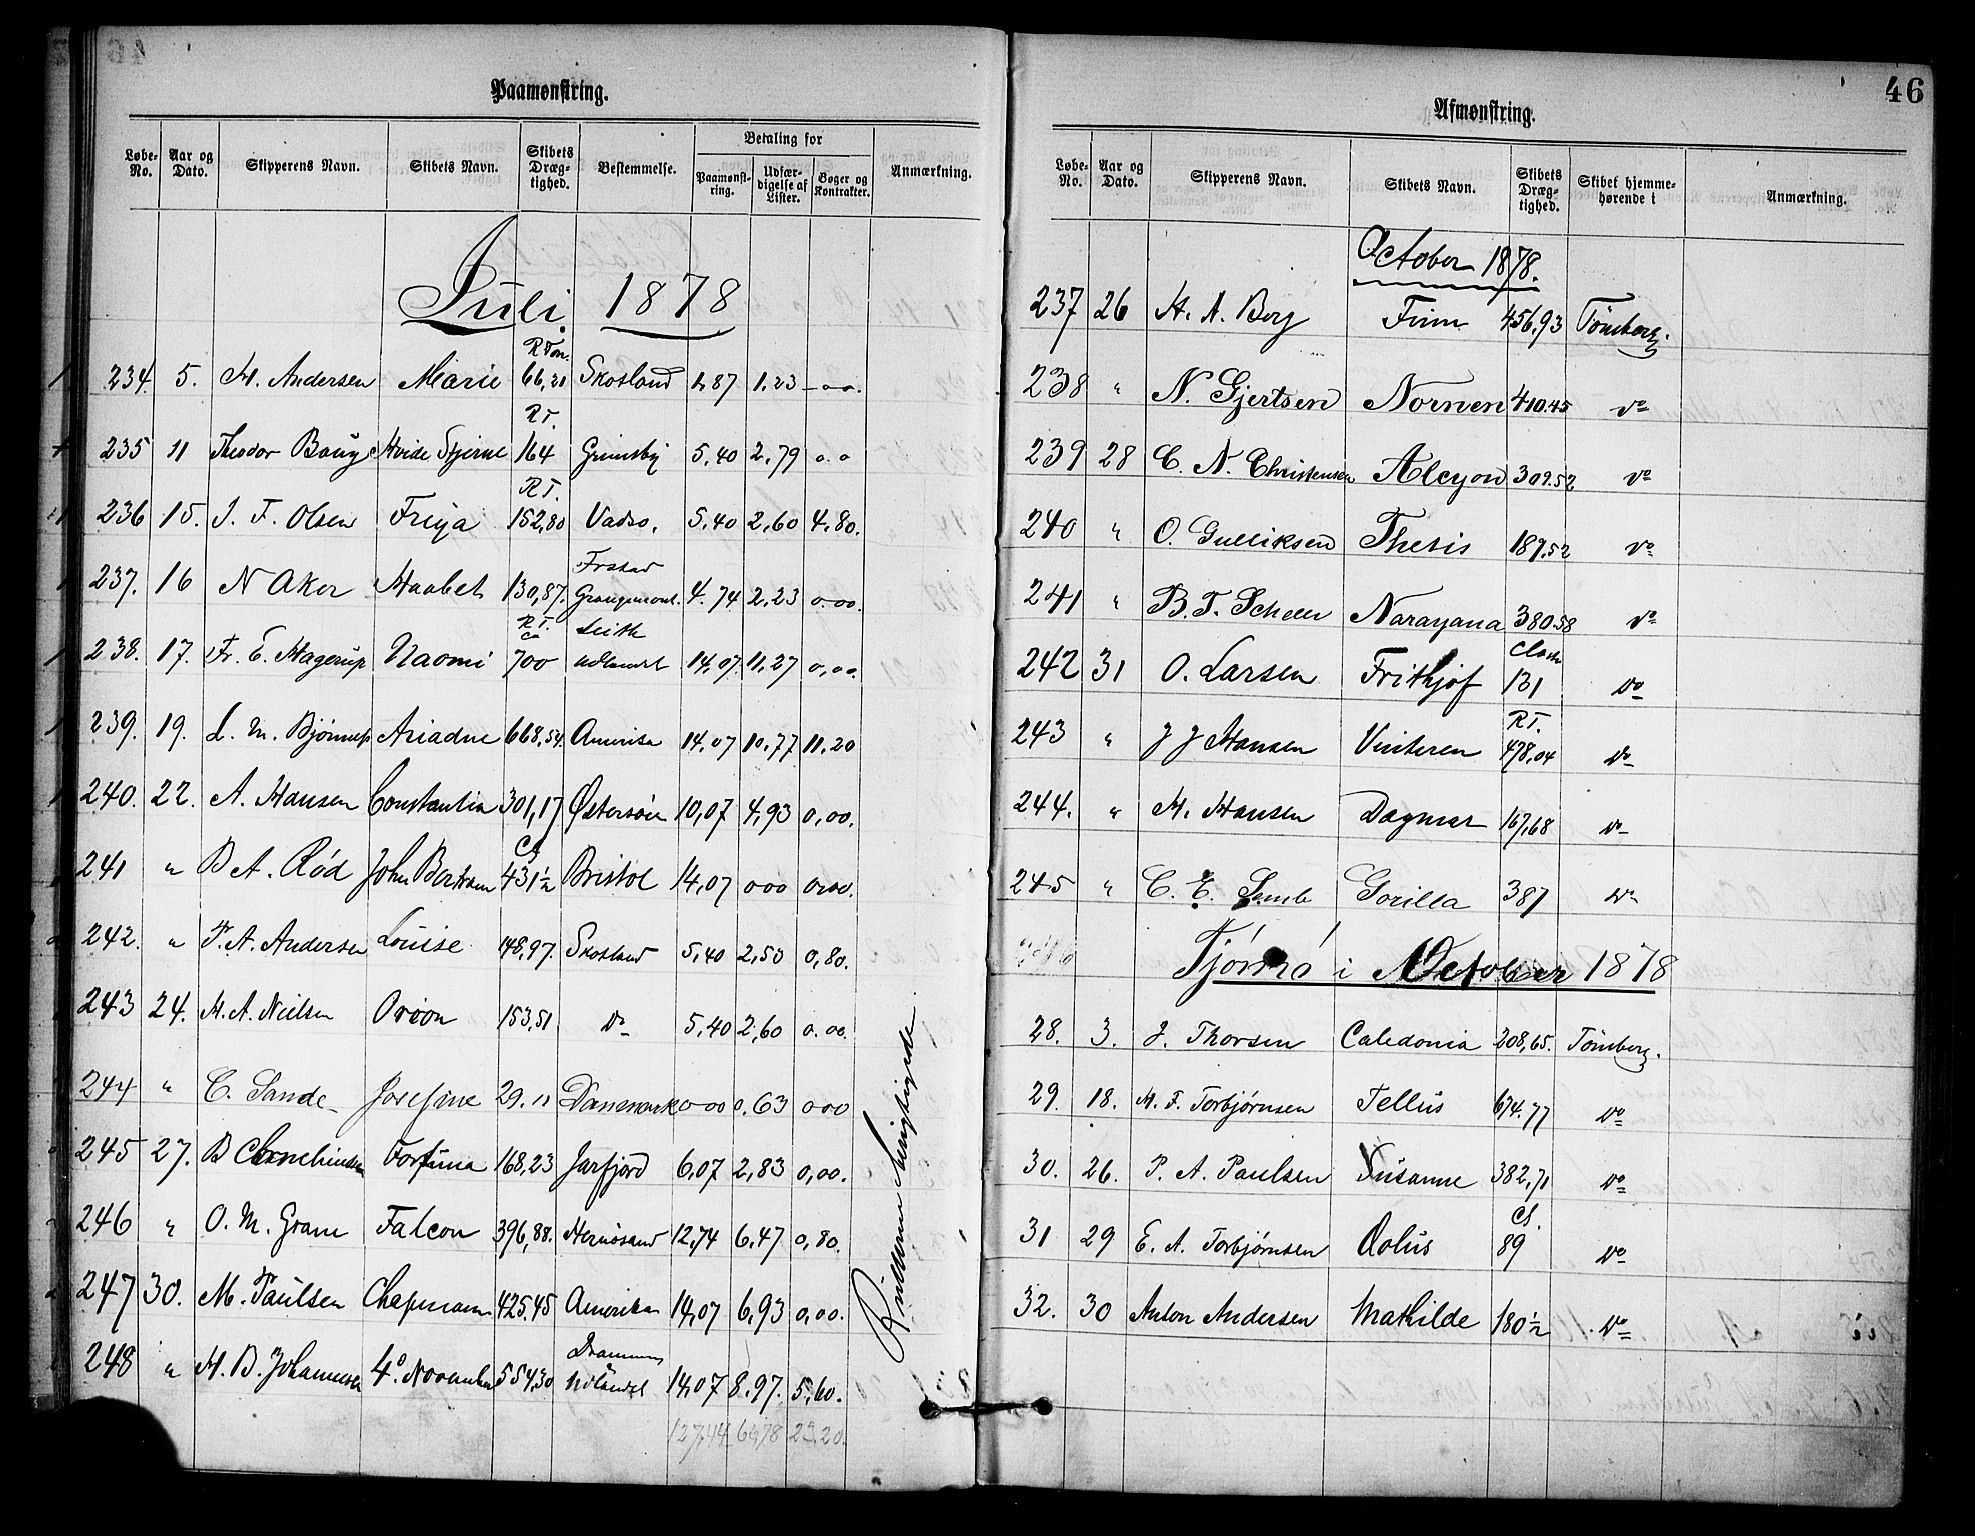 46
Paamønstring.
Løbe-No. Aar og Dato. Skipperens Navn. Skibets Navn. Skibets Dræg-tighed. Bestemmelse. Betaling for Paamønst-ring. Udfær-digelse af Lister. Bøger og Kontrakter. Anmærkning.
Juli 1878
R Ton.
234. 5. H. Andersen Marie 66,21 Skotland 1,87 1,23 -oo.
R T.
235 11 Theodor Baug Hvide Stjerne 164 Grimsby 5,40 2,79 o.o
R T.
236 15. J. F. Olsen Freya 152,80 Vadsø, 5,40 2,60 4,80.
237. 16 N Aker Haabet 130,87. Frstad Grangemont. 4.74 2,23 0.00.
R T. Leith
238. 17. Fr. E. Hagerup Naomi ca 700 udlandet 14,07. 11,27 0,00.
239. 19. L. M. Bjønnes Ariadne 668,54. Amerika 14,07 10,77 11,20
240. 22. A. Hansen Constantia 301,17. Østersøen 10,07 4,93 0,00.
Cl
241 " B A. Rød John Bertram 431½ Bristol 14,07 000 0,00.
242. " F. A. Andersen Louise 148,97. Skotland 5,40 2,50 0,80.
243 24. H. A. Nielsen Orion 153,51 Do 5,40 2,60 0.00.
244 " C. Sande Josefine 29.11 Danemark 0,00 0,63 000
245 27. B Cornelinsen Fortuna 168,23 Jarfjord 6,07 2,83 0,00.
246 " O. M. Grane Falcon 396,88. Hernøsand 12,74 6,47 0,80.
247 30. M. Paulsen Chapman 425,45 Amerika 14,07 6,93 0,00.
248 " H. B. Johannesen 4de November 554,30 Drammen Udlandet 14,07 8,97. 5,60.
127,44 61,78 23.20.
Afmønstring.
Løbe-No. Aar og Dato. Skipperens Navn. Skibets Navn. Skibets Dræg-tighed. Skibet hjemme-hørende i Anmærkning.
October 1878.
237 26 H. A. Berg Finn 456,93 Tønsberg.
238 " N. Gjertsen Nornen 410.45 Do
239 28 C. N. Christensen Alcyon 309.52 Do
240 " O. Gulliksen Thetis 187.52 Do
241 " B. T. Scheen Narayana 380.58 Do
242 31 O. Larsen Frithjof 131 Do
R T.
243 " J J Hansen Vinteren 478,04 Do
244. " H. Hansen Dagmar 167,68 Do
245 " C. E. Semb Gorilla 387 Do
Tjømø i October 1878
28. 3. J. Thorsen Caledonia 208,65. Tønsberg.
29. 18. H. F. Torbjørnsen Tellus 674.77 Do
30. 26. P. A. Paulsen Susanne 382,71 Do
Cl.
31 29 E. A. Torbjørnsen Æolus 89 Do
32. 30 Anton Andersen Mathilde 180½ Do